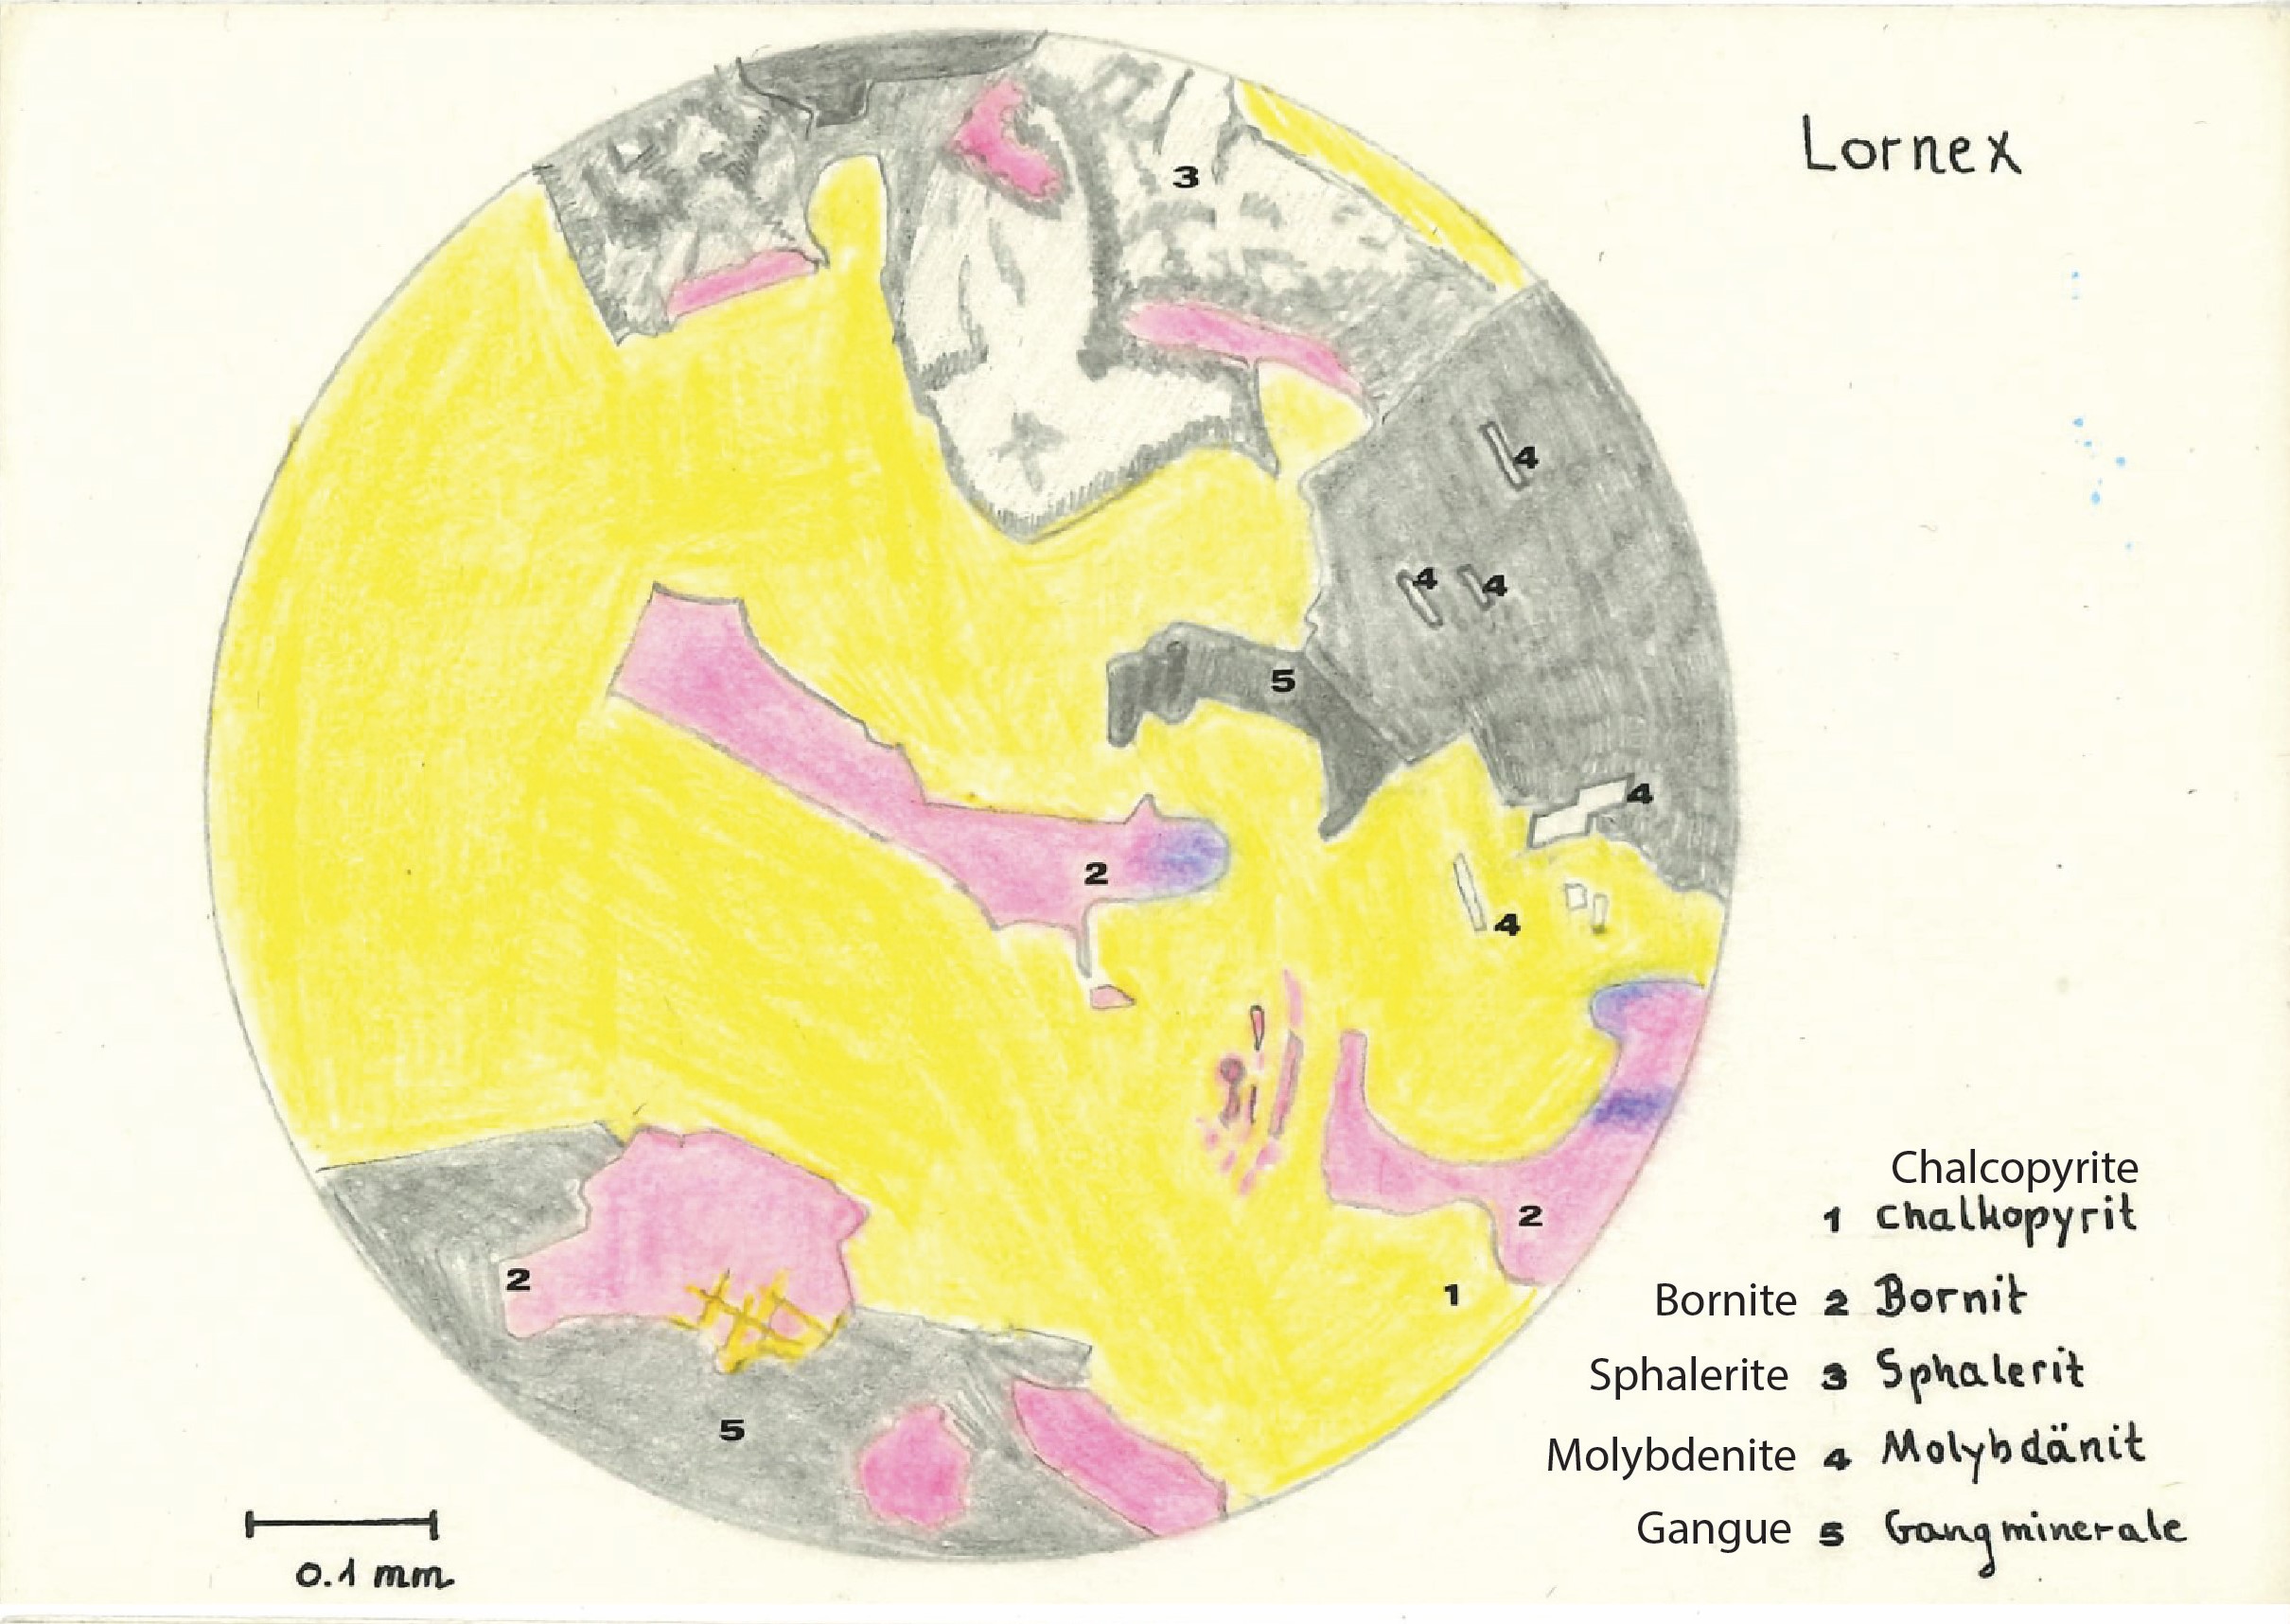 Lornex
3
4
4 4
5
4
2
4
Chalcopyrite
1 Chalkopyrit
2
2
1
Bornite 2 Bornit
Sphalerite 3 Sphalerit
5
Molybdenite 4 Molybdänit
Gangue 5 Gangminerale
0.1 mm